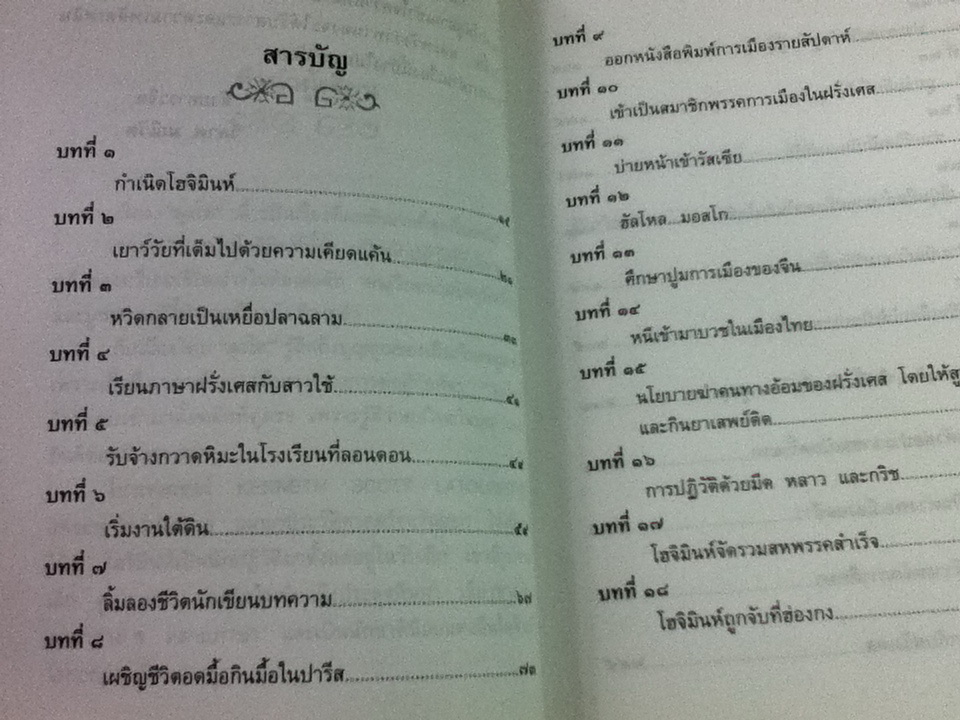 สารบัญ
บทที่ ๑
กำเนิดโฮจิมินห์
บทที่ ๒
เยาว์วัยที่เต็มไปด้วยความเคียดแค้น
บทที่ ๓
หวิดกลายเป็นเหยื่อปลาฉลาม
บทที่ ๔
เรียนภาษาฝรั่งเศสกับสาวใช้
บทที่ ๕
รับจ้างกวาดหิมะในโรงเรียนที่ลอนดอน
บทที่ ๖
เริ่มงานใต้ดิน
บทที่ ๗
ลิ้มลองชีวิตนักเขียนบทความ
บทที่ ๘
เผชิญชีวิตอดมื้อกินมื้อในปารีส
บทที่ ๙
ออกหนังสือพิมพ์การเมืองรายสัปดาห์
บทที่ ๑๐
เข้าเป็นสมาชิกพรรคการเมืองในฝรั่งเศส
บทที่ ๑๑
บ่ายหน้าเข้ารัสเซีย
บทที่ ๑๒
ฮัลโหล...มอสโก
บทที่ ๑๓
ศึกษาปูมการเมืองของจีน
บทที่ ๑๔
หนีเข้ามาบวชในเมืองไทย
บทที่ ๑๕
นโยบายฆ่าคนทางอ้อมของฝรั่งเศส โดยให้สู
และกินยาเสพย์ติด
บทที่ ๑๖
การปฏิวัติด้วยมีด หลาว และกริช
บทที่ ๑๗
โฮจิมินห์จัดรวมสหพรรคสำเร็จ
บทที่ ๑๘
โฮจิมินห์ถูกจับที่ฮ่องกง